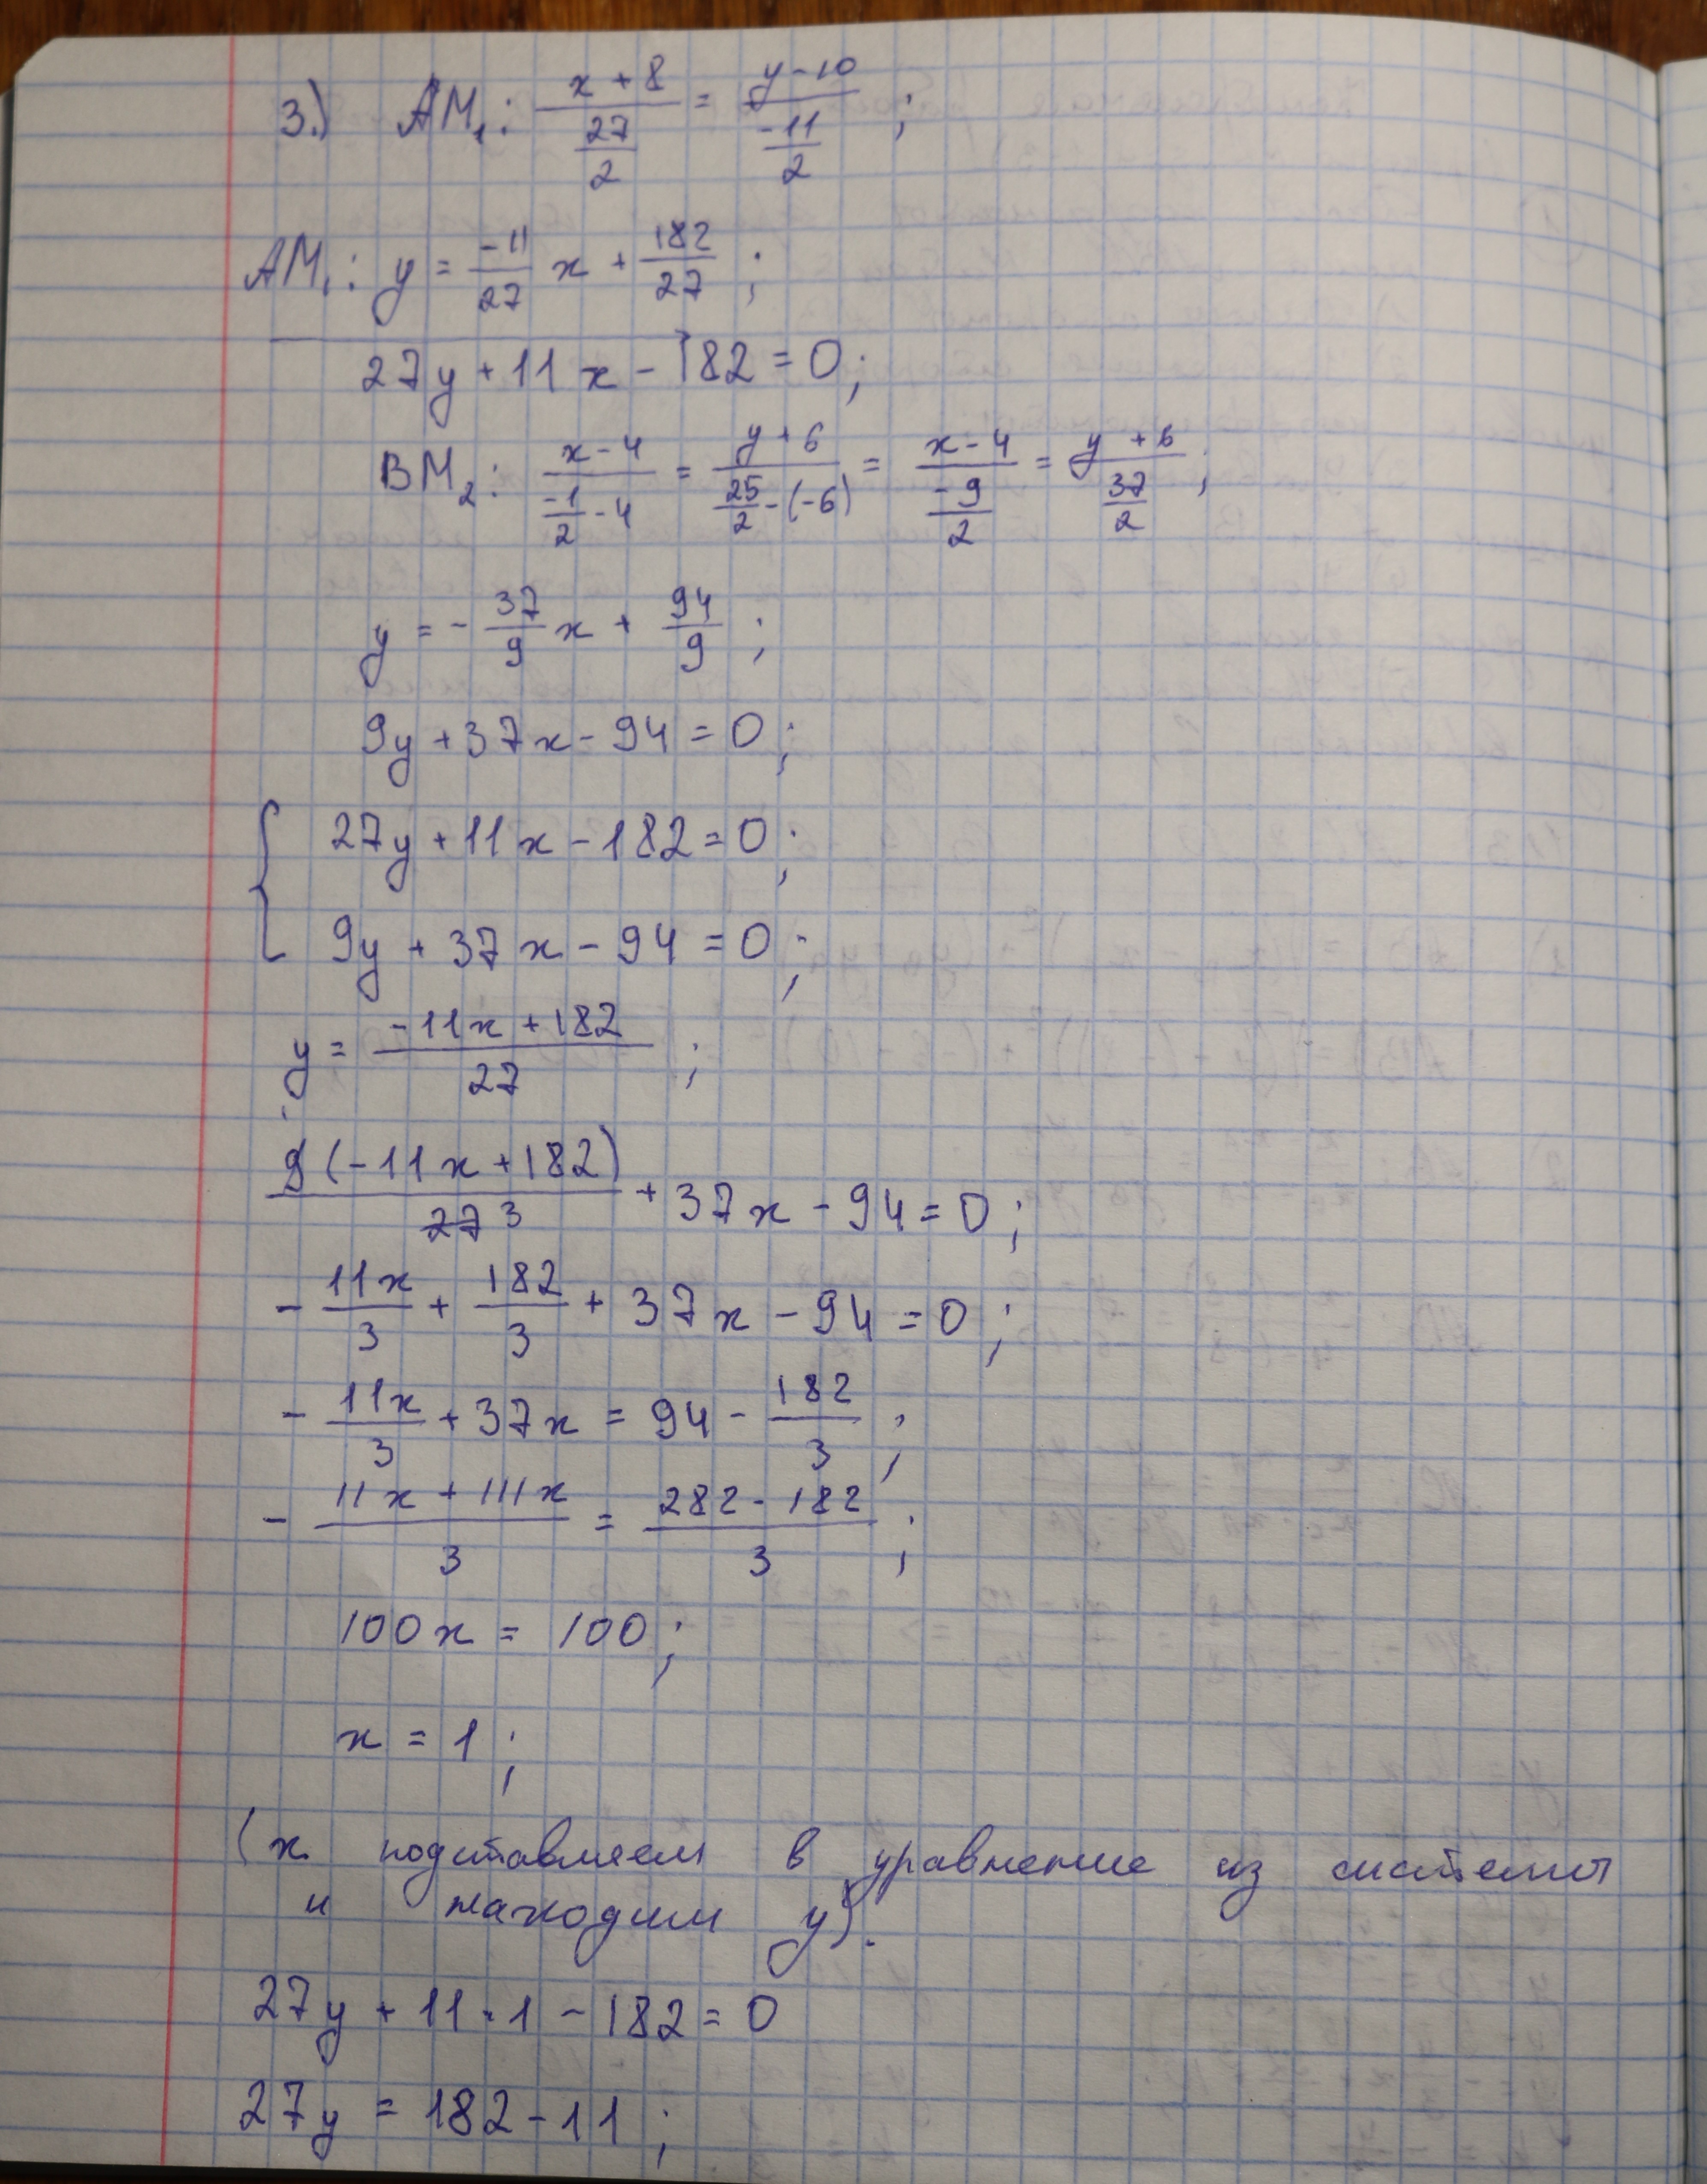 3.) AM₁: (x+8)/(27/2) = (y-10)/(-11/2) ;
AM₁: y = -11/27 x + 182/27 ;
27y + 11x - 182 = 0 ;
BM₂: (x-4)/(-1/2 - 4) = (y+6)/(25/2 - (-6)) = (x-4)/(-9/2) = (y+6)/(37/2) ;
y = - 37/9 x + 94/9 ;
9y + 37x - 94 = 0 ;
{ 27y + 11x - 182 = 0 ;
9y + 37x - 94 = 0 ;
y = (-11x + 182)/27 ;
9(-11x + 182)/27 3 + 37x - 94 = 0 ;
- 11x/3 + 182/3 + 37x - 94 = 0 ;
- 11x/3 + 37x = 94 - 182/3 ;
- (11x + 111x)/3 = (282 - 182)/3 ;
100x = 100 ;
x = 1 ;
(x подставляем в уравнение из системы
и находим y).
27y + 11 · 1 - 182 = 0
27y = 182 - 11 ;